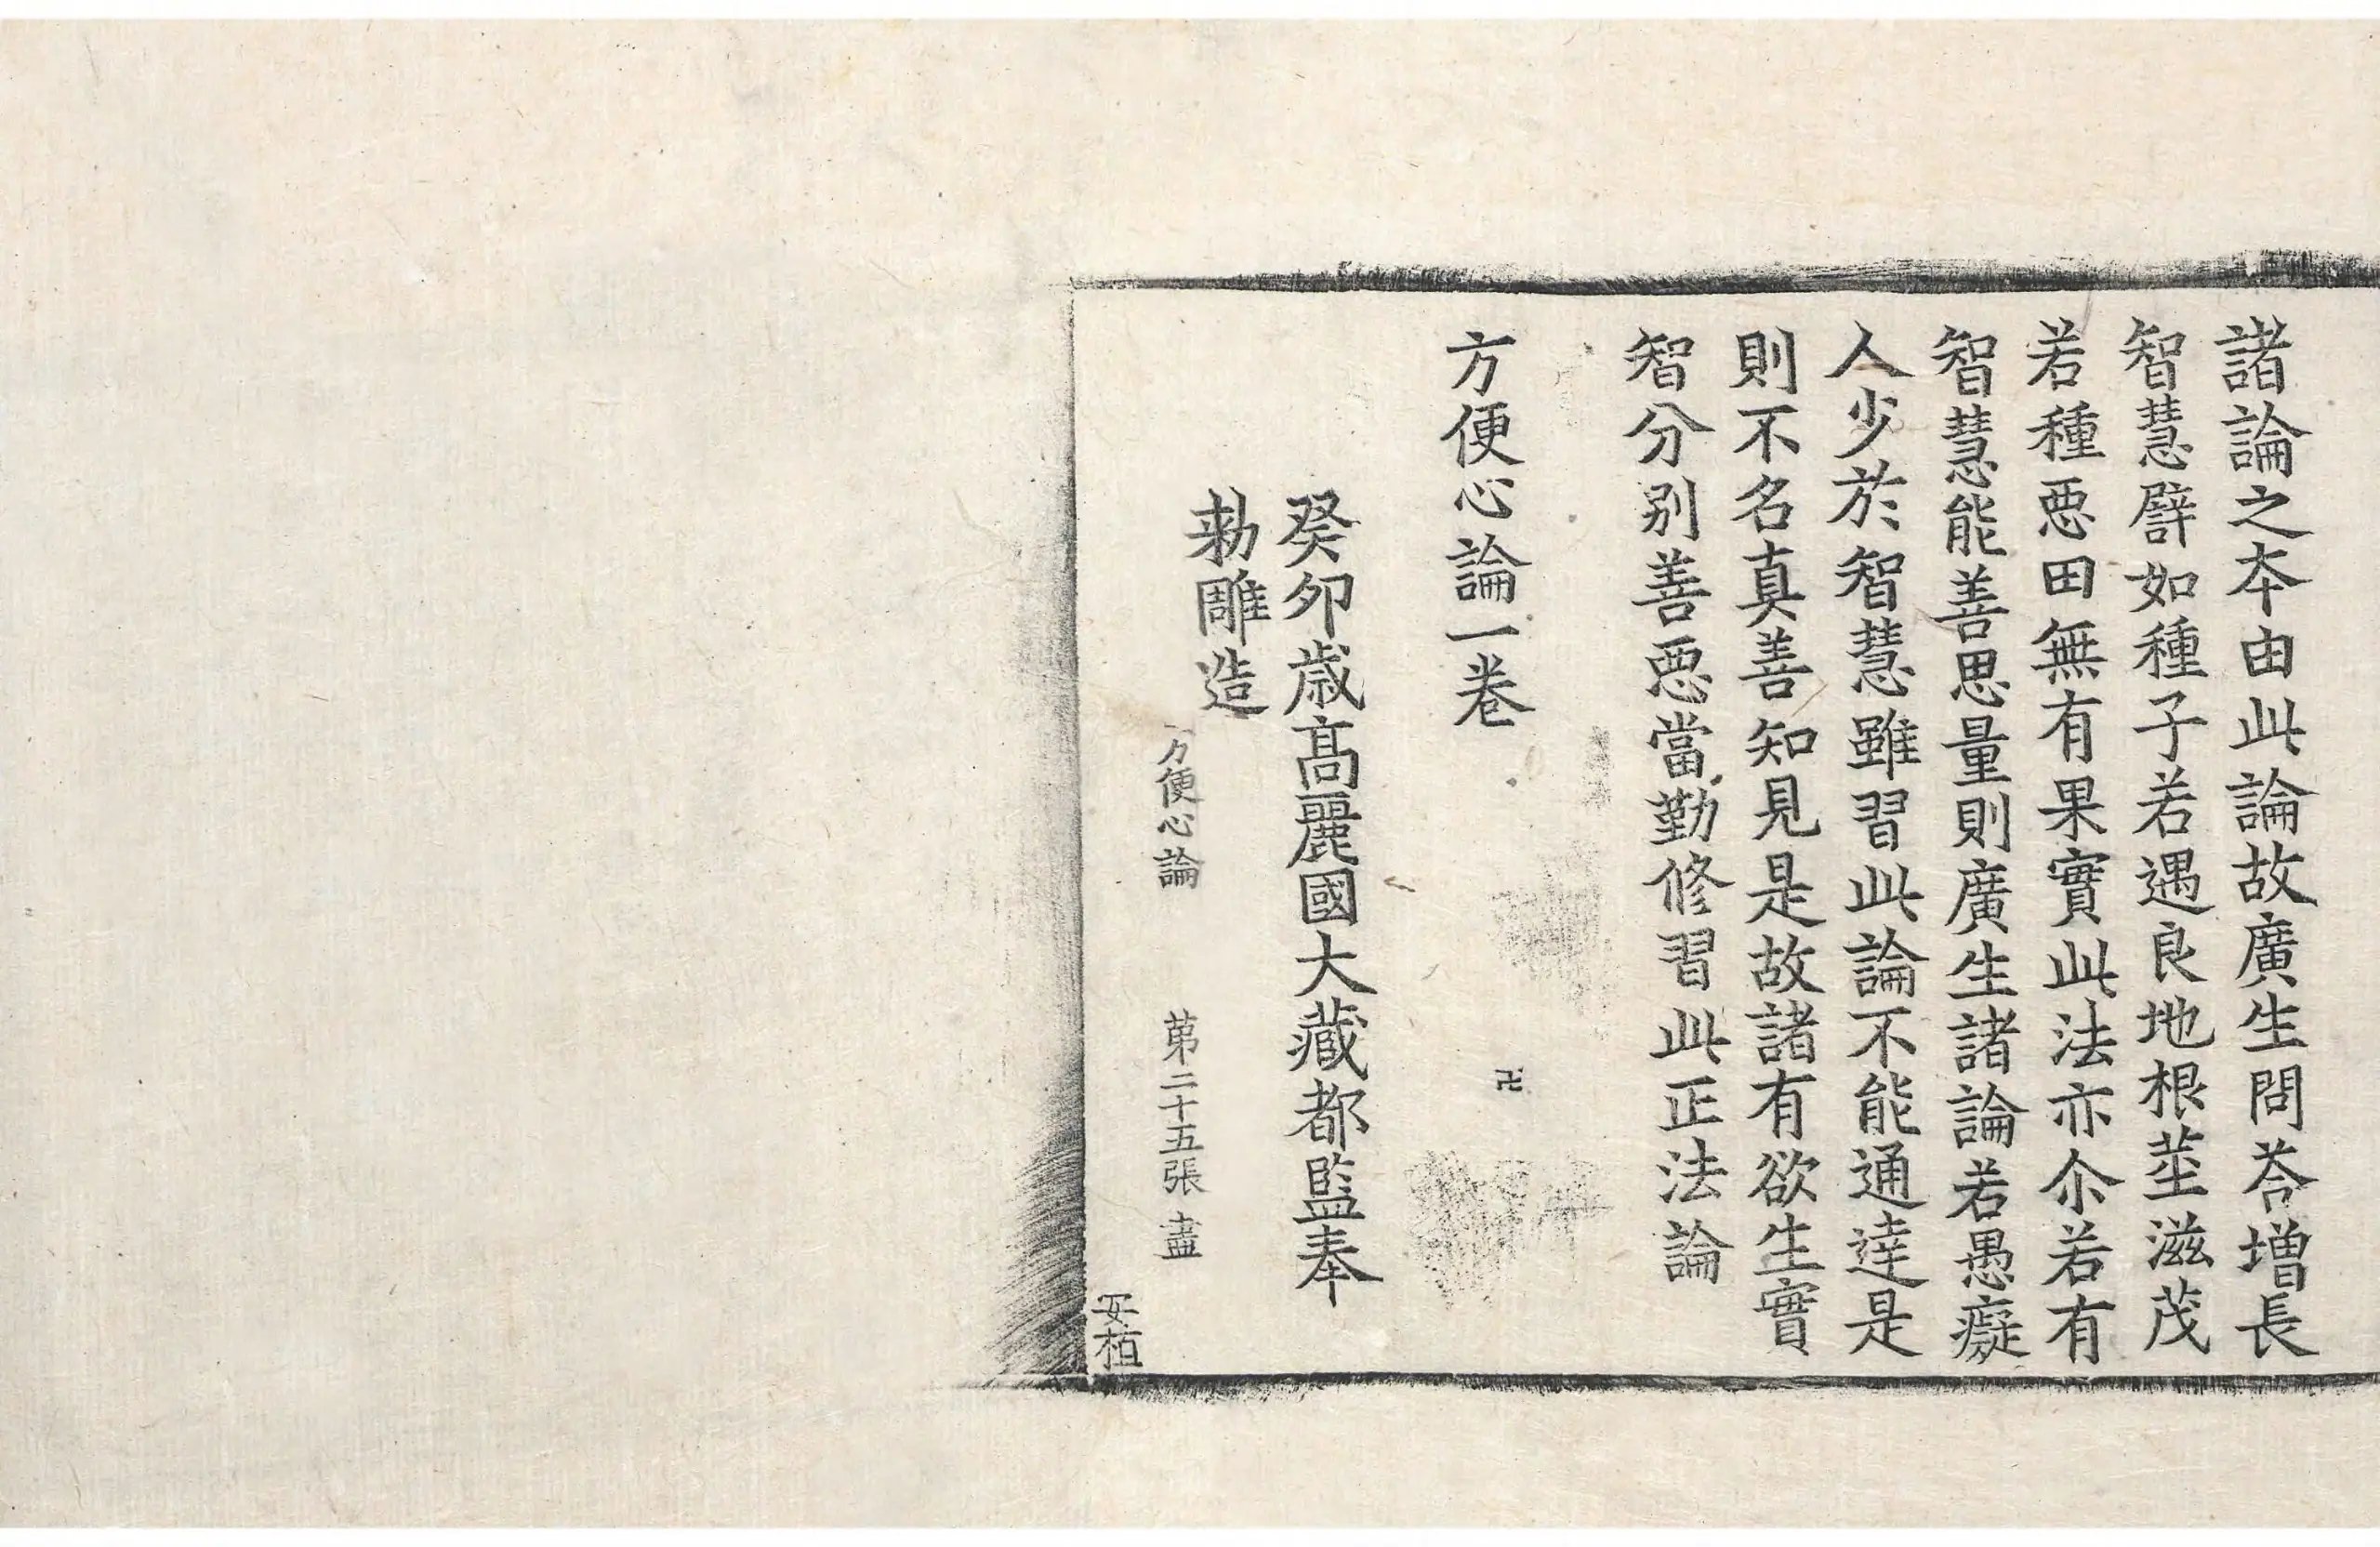 諸論之夲由此論故廣生問荅增長
智慧譬如種子若遇良地根莖滋茂
若種惡田無有果實此法亦尒若有
智慧能善思量則廣生諸論若愚癡
人少於智慧雖習此論不能通達是
則不名真善知見是故諸有欲生實
智分别善惡當勤修習此正法論
方便心論一卷
卍
癸夘歳高麗國大藏都監奉
勑雕造
方便心論 第二十五張 盡